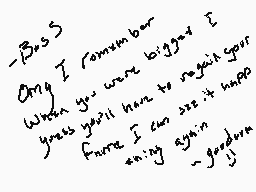 -Boss
Omg I romember
When you were bigger I
guess you'll have to regain your
Fame I can see it happ
ening again
~goodora